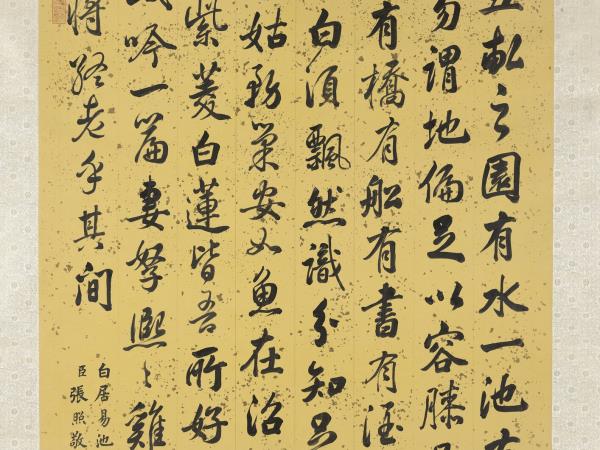 五畝之園有水一池有
勿謂地偏足以容膝
有橋有船有書有酒
白須飄然識分知足
姑務巢安如魚在沼
紫菱白蓮皆吾所好
吟一篇妻孥熙〻雞
將終老乎其間
白居易池
臣張照敬